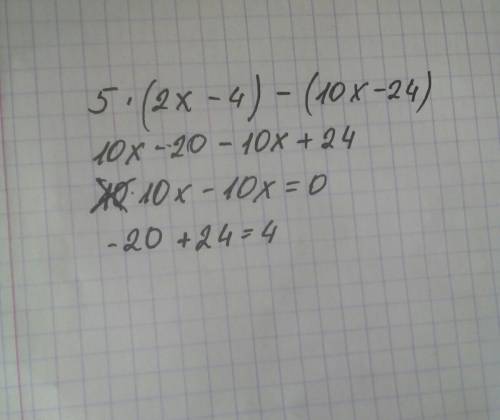 5 · (2x - 4) - (10x - 24)
10x - 20 - 10x + 24
10x - 10x = 0
- 20 + 24 = 4